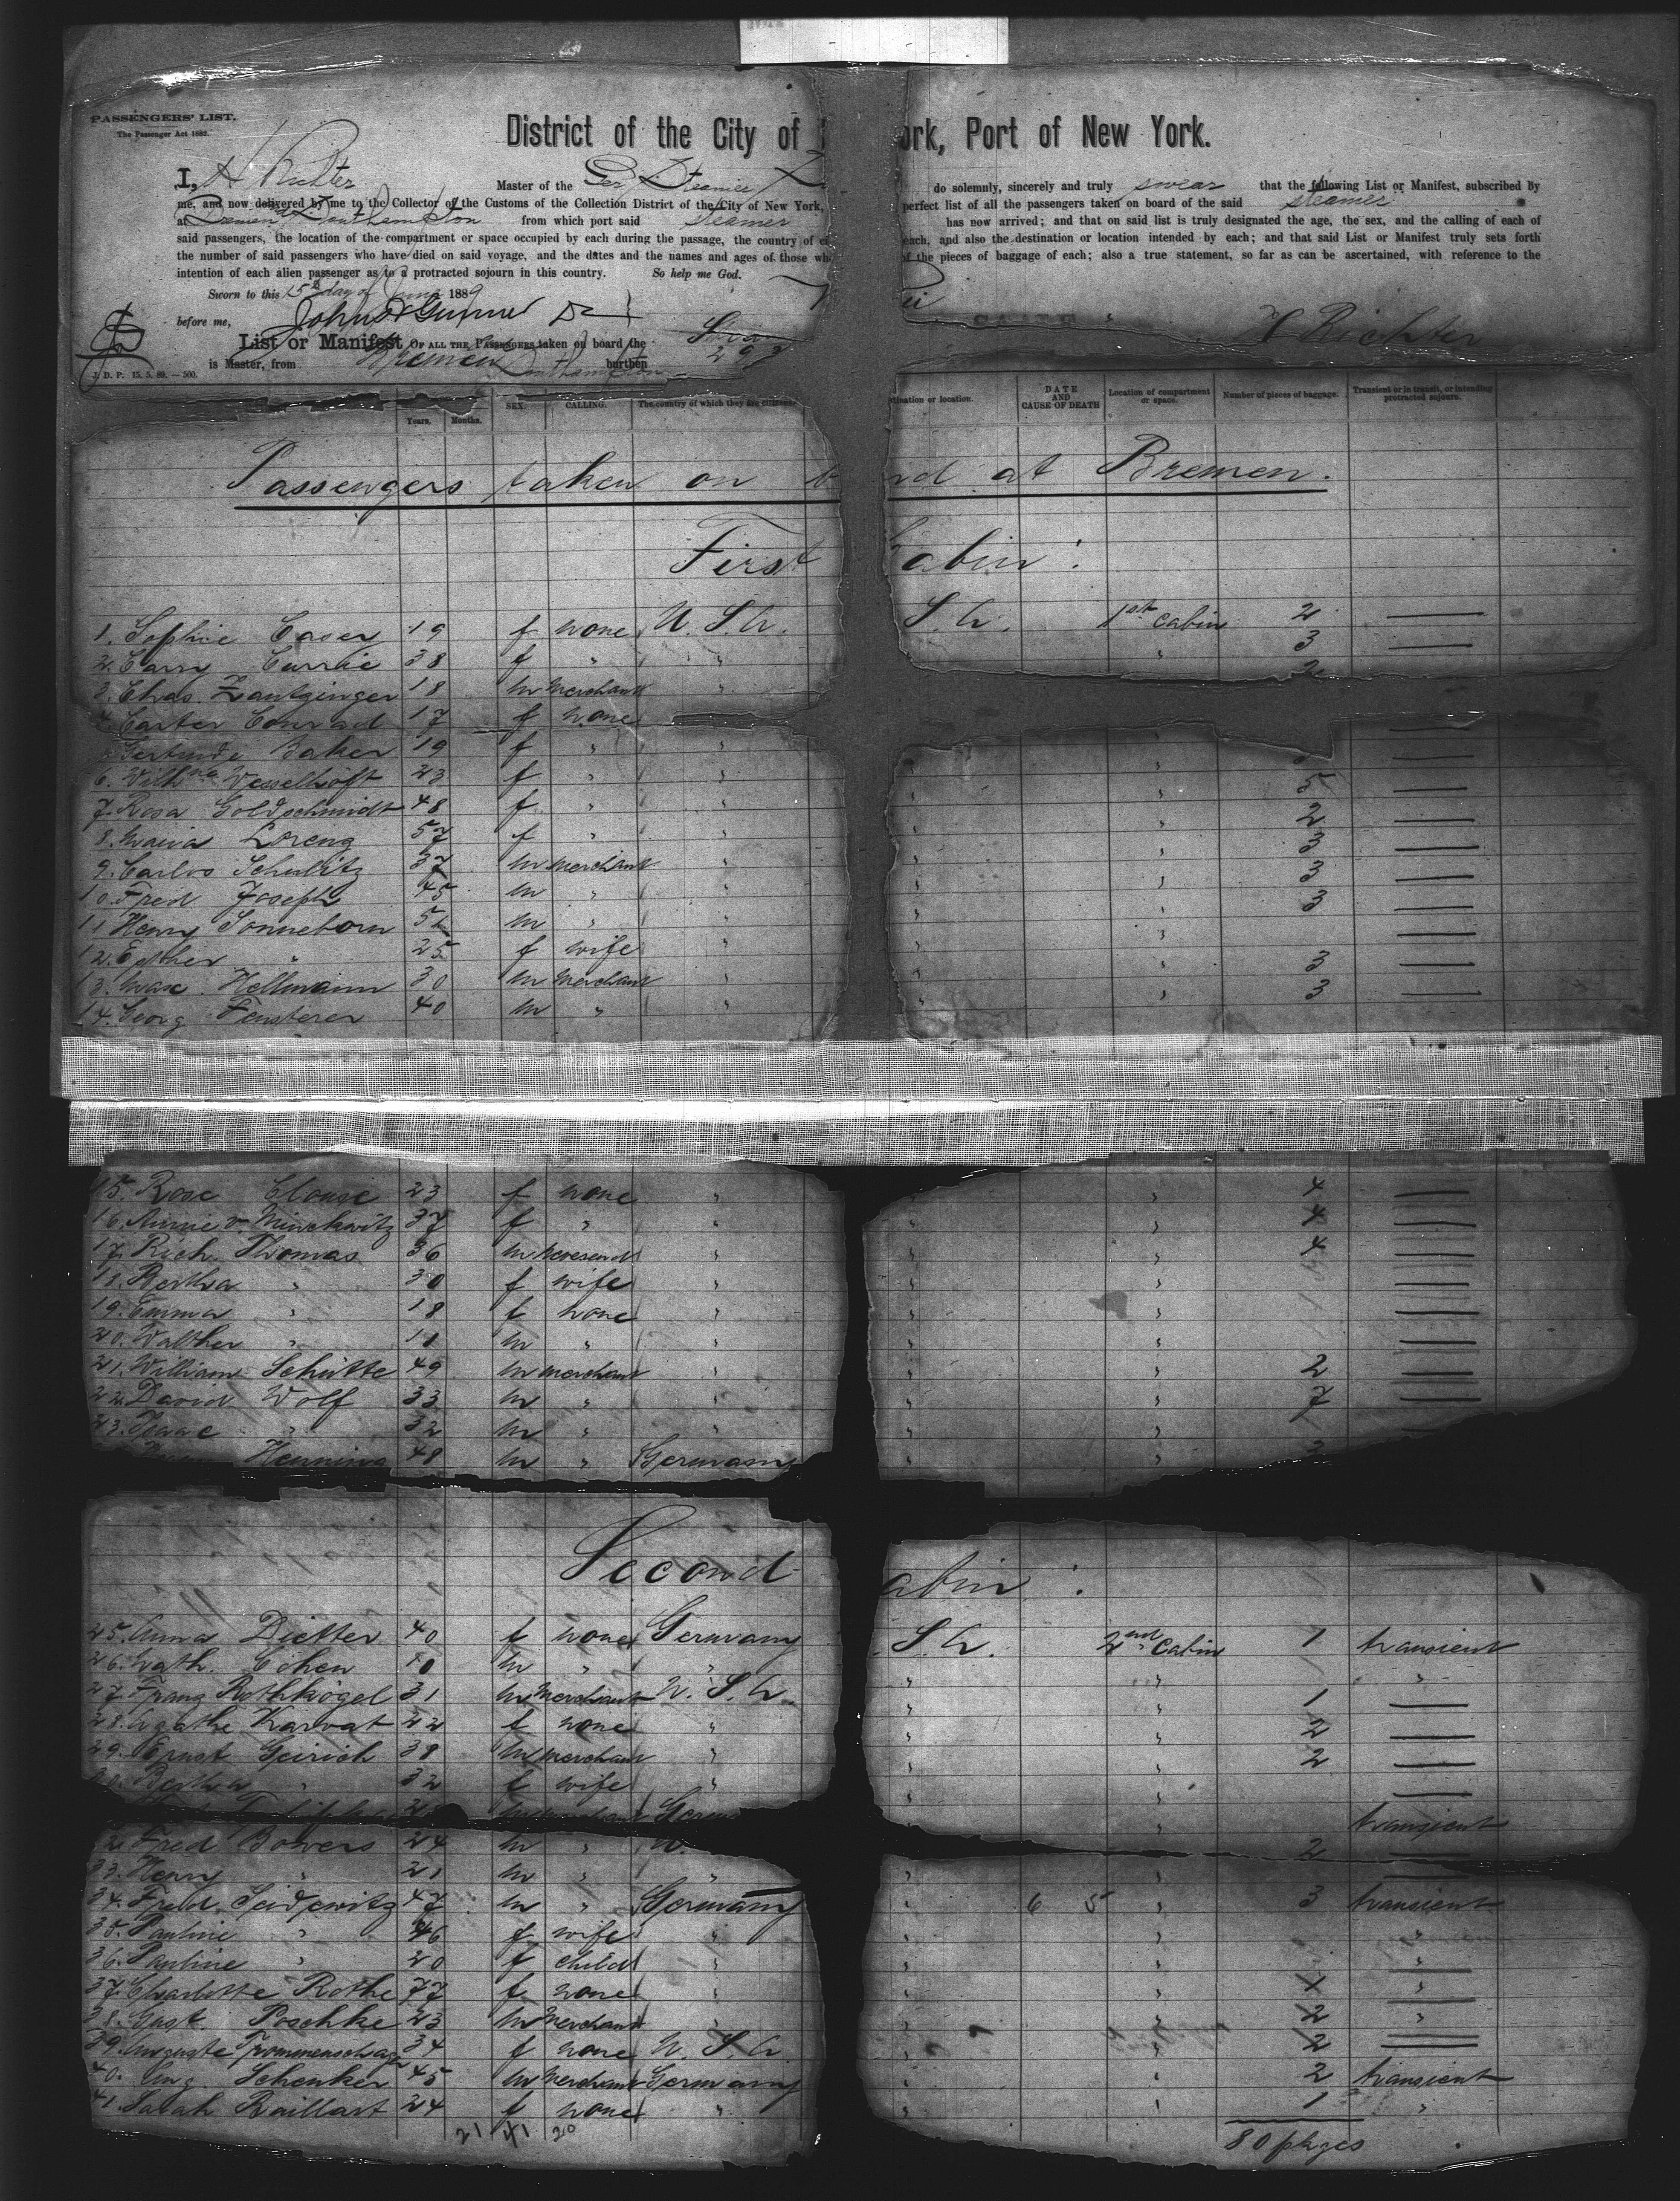 PASSENGERS' LIST.
The Passenger Act 1882.
District of the City of ork, Port of New York.
I, H Richter Master of the Ger Steamer do solemnly, sincerely and truly swear that the following List or Manifest, subscribed by
me, and now delivered by me to the Collector of the Customs of the Collection District of the City of New York, perfect list of all the passengers taken on board of the said steamer
at Bremen & Southampton from which port said steamer has now arrived; and that on said list is truly designated the age, the sex, and the calling of each of
said passengers, the location of the compartment or space occupied by each during the passage, the country of each, and also the destination or location intended by each; and that said List or Manifest truly sets forth
the number of said passengers who have died on said voyage, and the dates and the names and ages of those wh of the pieces of baggage of each; also a true statement, so far as can be ascertained, with reference to the
intention of each alien passenger as to a protracted sojourn in this country. So help me God.
Sworn to this 15th day of June 1889
before me, H Richter
List or Manifest OF ALL THE PASSENGERS taken on board the
is Master, from Bremen Southampton burthen
J. D. P. 15. 5. 89. — 500.
Years. Months. SEX. CALLING. The country of which they are citizens ination or location. DATE AND CAUSE OF DEATH Location of compartment or space. Number of pieces of baggage. Transient or in transit, or intending protracted sojourn.
Passengers taken on b rd at Bremen.
First abin:
1. Sophie Casey 19 f none U. S. A. S. A. 1st Cabin 2 —
2. Carry Currie 38 f " " " 3 —
3. Chas. Zantzinger 18 m Merchant " 2
4. Carter Conrad 17 f none
5. Gertrude Baker 19 f " "
6. Wilhna Wesselhoft 23 f " " " " 5 —
7. Rosa Goldschmidt 48 f " " " " 2 —
8. Maria Lorenz 57 f " " " " 3 —
9. Carlos Schulitz 37 m merchant " " " 3 —
10. Fred Joseph 45 m " " " " 3 —
11 Henry Sonneborn 51 m " " " " —
12. Esther " 25 f wife " " " 3 —
13. Max Hellmann 30 m Merchant " " " 3 —
14. Georg Fensterer 40 m "
15. Rose Clouse 23 f none " " " 4 —
16. Annie v. Minckwitz 37 f " " " " 4 —
17. Rich. Thomas 36 m reverend " " " 4 —
18. Bertha " 30 f wife " " " —
19. Emma " 18 f none " " " —
20. Walther " 11 m " " " " —
21. William Schütte 49 m merchant " " " 2 —
22. David Wolf 33 m " " " " 7 —
23. Isaac " 32 m " " " "
Henning 48 m " Germany " " 3
Second abin:
25. Anna Dietter 40 f none Germany S A. 2nd Cabin 1 transient
26. Nath. Cohen 40 m " " " " "
27. Franz Rothkögel 31 m Merchant U. S. A. " " 1 —
28. Agathe Karvat 22 f none " " " 2 —
29. Ernst Geirich 38 m merchant " " " 2 —
30. Bertha " 32 f wife " " " —
transient
32. Fred Bowers 24 m " U. 2 —
33. Henry " 21 m " " " " —
34. Fred. Seidewitz 47 m " Germany " 6 5 " 3 transient
35. Pauline " 46 f wife " " " "
36. Pauline " 20 f child " " " "
37. Charlotte Rothe 77 f none " " "
38. Gust. Poschke 23 m Merchant " " " 2 "
39. Auguste Trommenschlager 34 f none U. S. A. " " 2 —
40. Aug. Schenker 45 m Merchant Germany " " 2 transient
41. Sarah Raillart 24 f none " " " 1 "
21 41 20 80 pkges